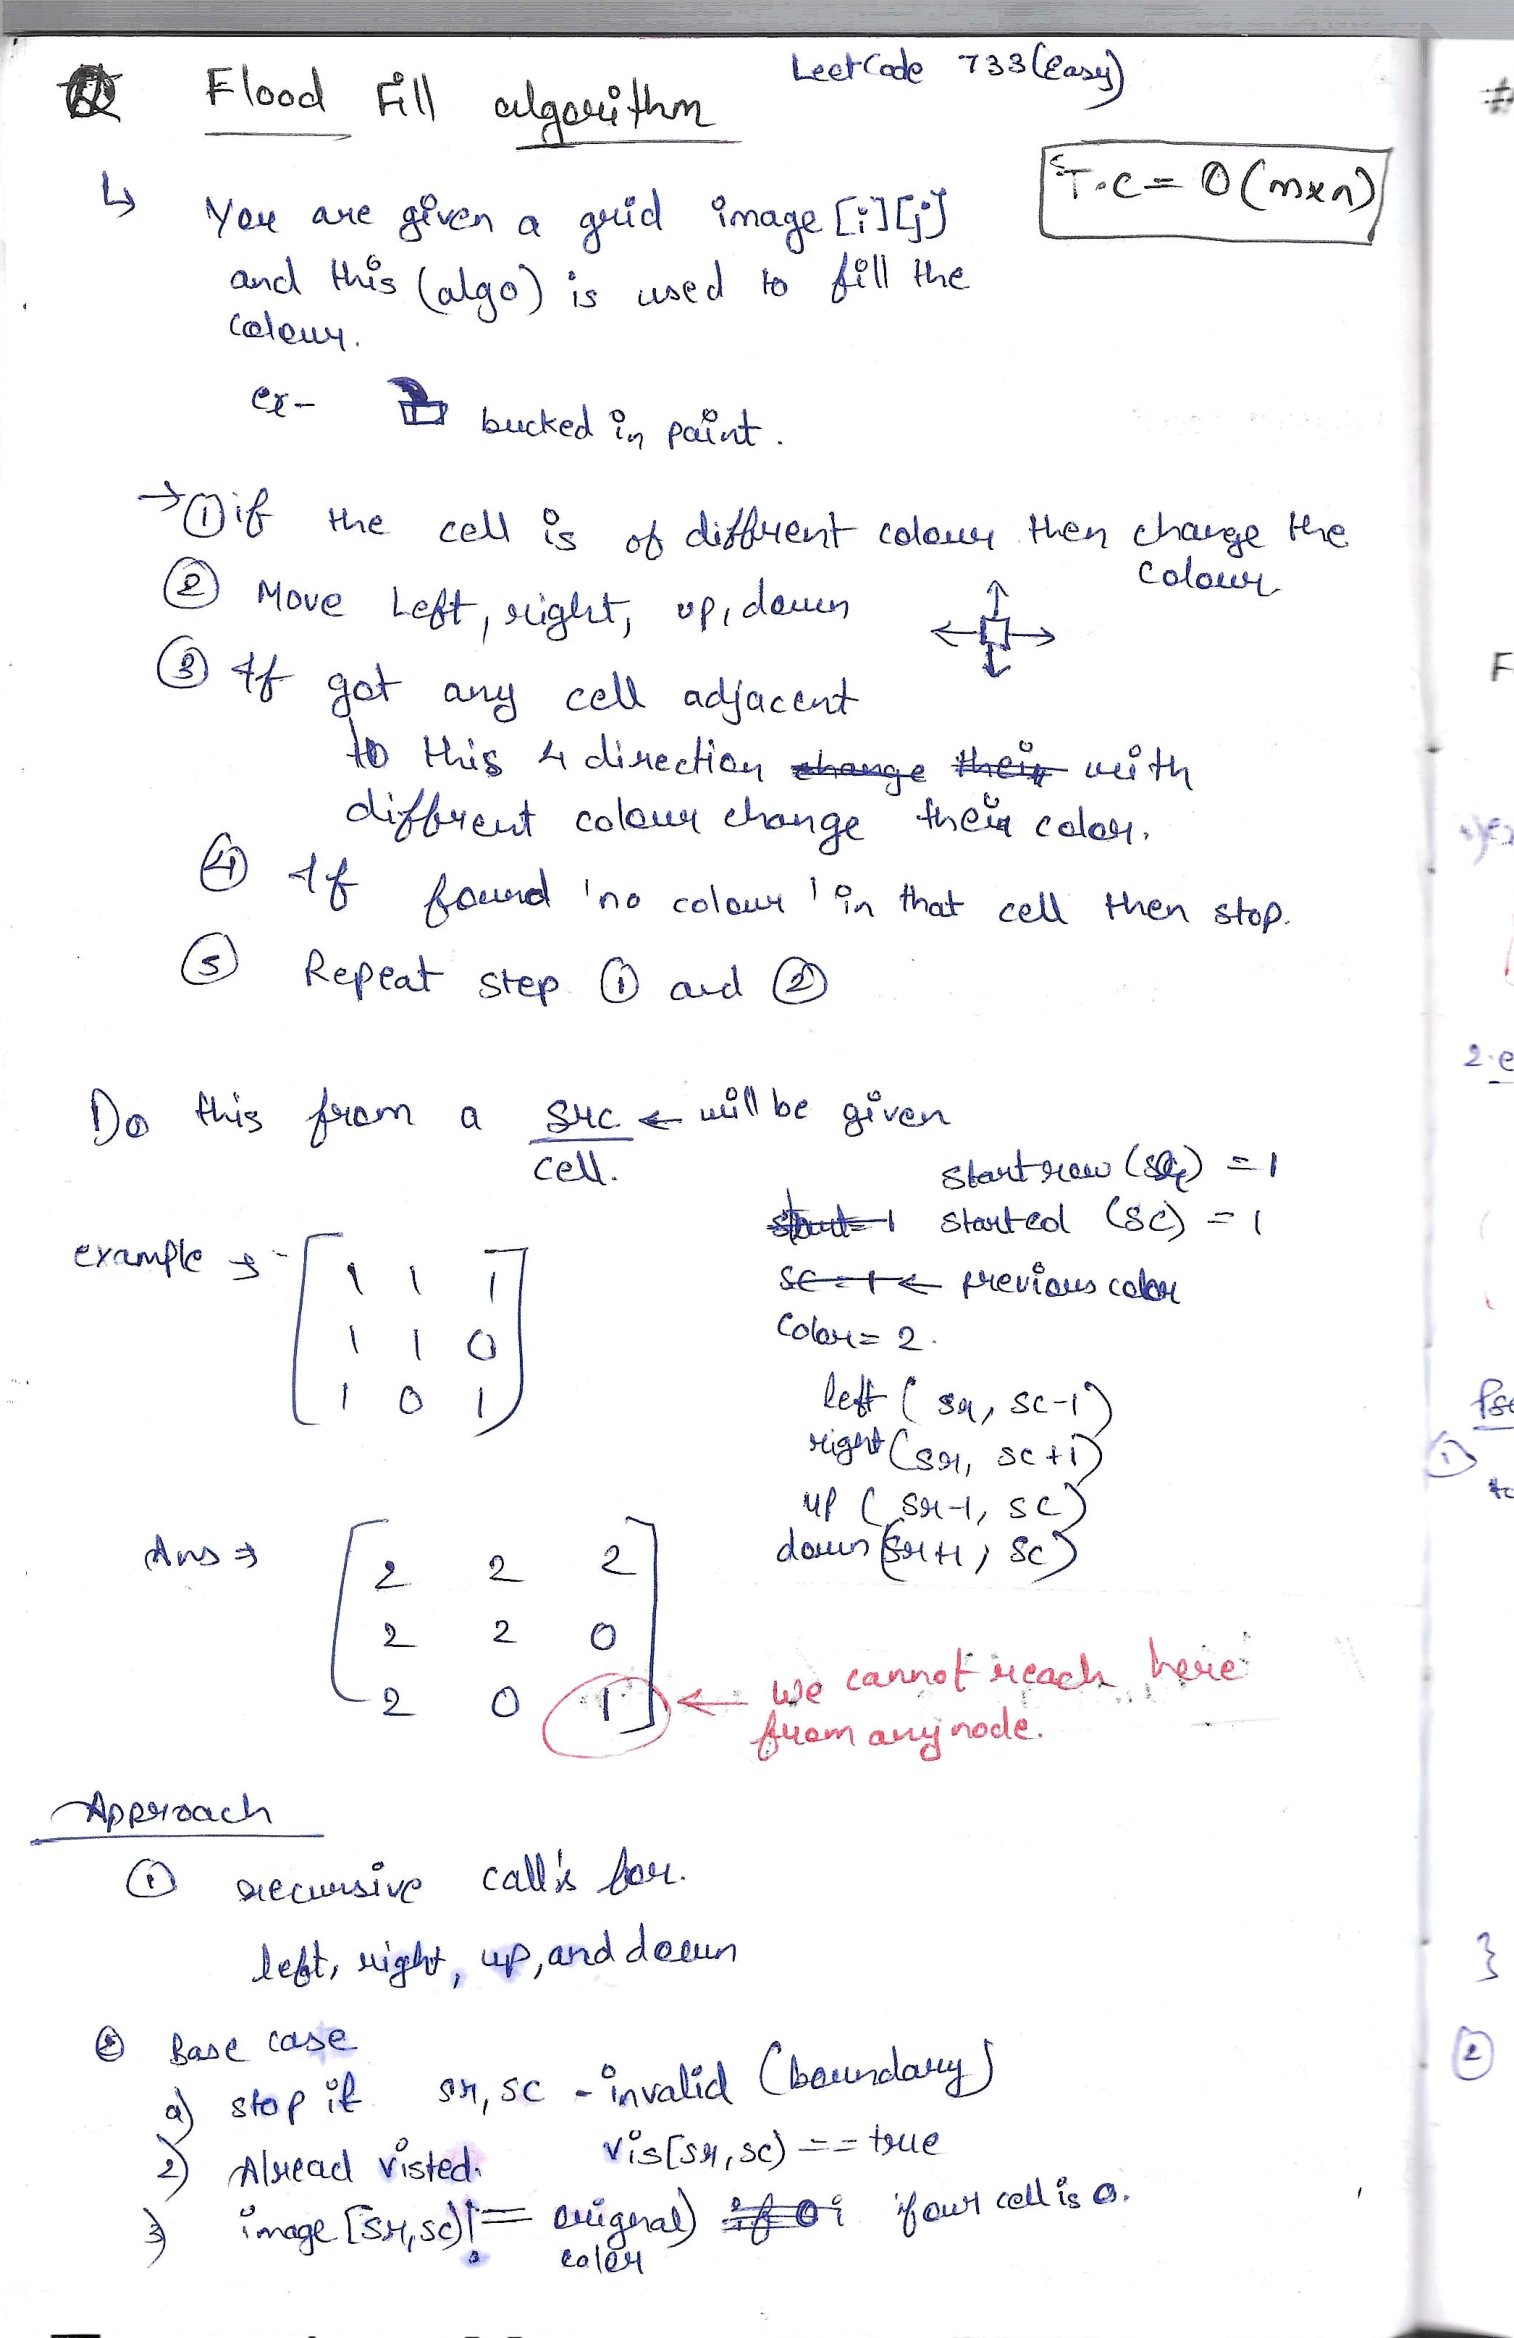 Q Flood Fill algorithm
LeetCode 733 (Easy)
T.C = O(mxn)
↳ You are given a grid image [i][j]
and this (algo) is used to fill the
colour.
ex- bucked in paint.
→ ① if the cell is of different colour then change the
colour
② Move Left, right, up, down
③ If got any cell adjacent
to this 4 direction change their with
different colour change their color.
④ If found 'no colour' in that cell then stop.
⑤ Repeat step ① and ②
Do this from a src ← will be given
cell.
start row (sr) = 1
start = 1 start col (sc) = 1
sc = 1 ← previous color
Color = 2.
example → 
1 1 1
1 1 0
1 0 1
left (sr, sc-1)
right (sr, sc+1)
up (sr-1, sc)
down (sr+1, sc)
Ans ⇒
2 2 2
2 2 0
2 0 1 ← we cannot reach here
from any node.
Approach
① recursive call's for.
left, right, up, and down
② Base case
a) stop if sr, sc - invalid (boundary)
2) Alread visted. vis[sr,sc) == true
3) image [sr,sc)!= original) if 0 if our cell is 0.
color
#
F
2.e
Pse
①
to
}
②